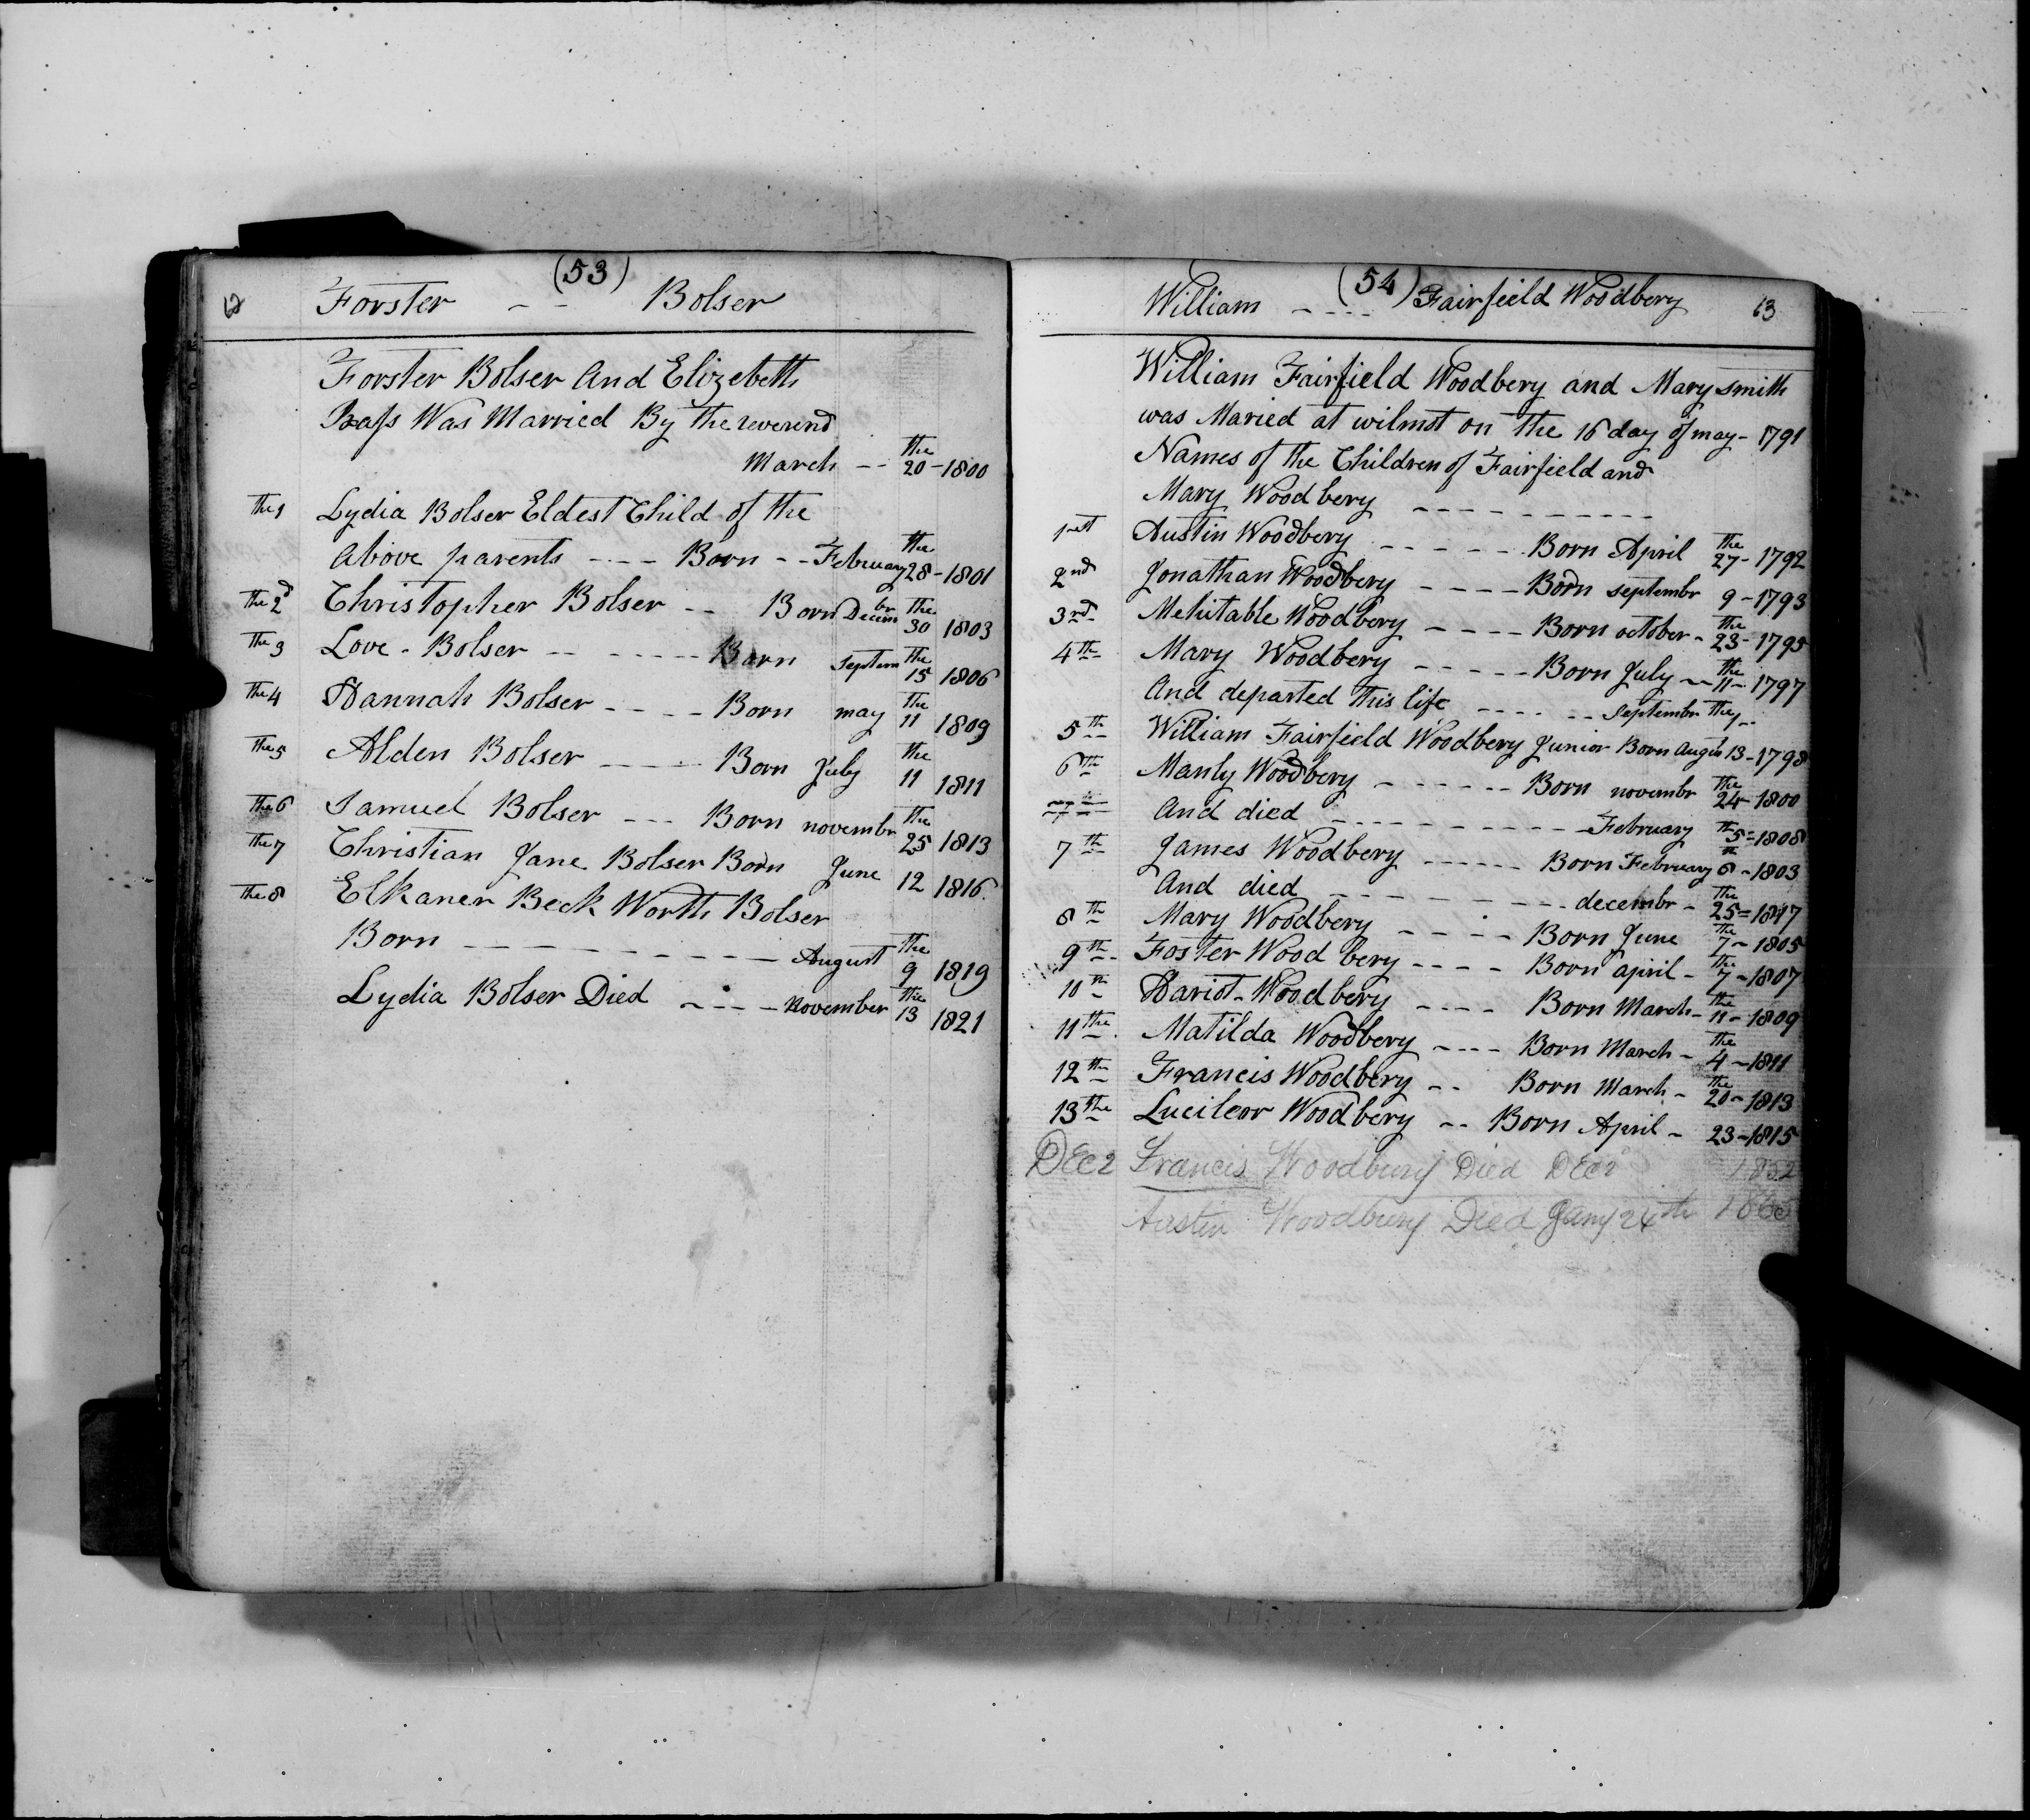 (53)
12 Forster - - Bolser
Forster Bolser And Elizebeth
Bass Was Married By the reverend
March -- the 20 - 1800
The 1 Lydia Bolser Eldest Child of the
Above parents ---- Born -- February the 28 - 1801
The 2d Christopher Bolser -- Born Decembr the 30 1803
The 3 Love - Bolser ------ Born Septem the 15 1806
The 4 Hannah Bolser ---- Born may the 11 1809
The 5 Alden Bolser ---- Born July the 11 1811
The 6 Samuel Bolser --- Born novembr the 25 1813
The 7 Christian Jane Bolser Born June 12 1816
The 8 Elkaner Beck Worth Bolser
Born -------- August the 9 1819
Lydia Bolser Died ---- November the 13 1821
(54)
William ---- Fairfield Woodbery 13
William Fairfield Woodbery and Mary smith
was Maried at wilmot on the 16 day of may - 1791
Names of the Children of Fairfield and
Mary Woodbery -----------
Austin Woodbery ----- Born April the 27 - 1792
2nd Jonathan Woodbery ---- Born septembr 9 - 1793
3rd Mehitable Woodbery ---- Born october - the 23 - 1795
4th Mary Woodbery ----- Born July -- the 11 - 1797
And departed this life ---- -- Septembr the
5th William Fairfield Woodbery Junior Born 13 - 1798
6th Manly Woodbery ------ Born novembr the 24 - 1800
And died ---------- February th 5 = 1808
7th James Woodbery ------ Born February 6 - 1803
And died --------- decembr - the 25 =
8th Mary Woodbery ----- Born June the 7 - 1805
9th Foster Wood bery ---- Born april - the 7 - 1807
10th Hariot - Woodbery ---- Born March - the 11 - 1809
11the Matilda Woodbery ---- Born March - the 4 - 1811
12th Francis Woodbery -- Born March - the 20 - 1813
13the Lucilear Woodbery -- Born April - 23 - 1815
DEC 2 Francis Woodbury Died DEC 1852
Austin Woodbury Died Jany 24th